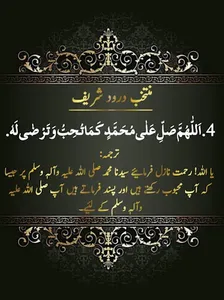 منتخب درود شریف
4. اَللّٰهُمَّ صَلِّ عَلٰى مُحَمَّدٍ كَمَا تُحِبُّ وَتَرْضٰى لَهُ.
ترجمہ:
یا اللہ! رحمت نازل فرمایئے سیدنا محمد صلی اللہ علیہ وآلہ وسلم پر جیسا
کہ آپ محبوب رکھتے ہیں اور پسند فرماتے ہیں آپ صلی اللہ علیہ
وآلہ وسلم کے لئے۔